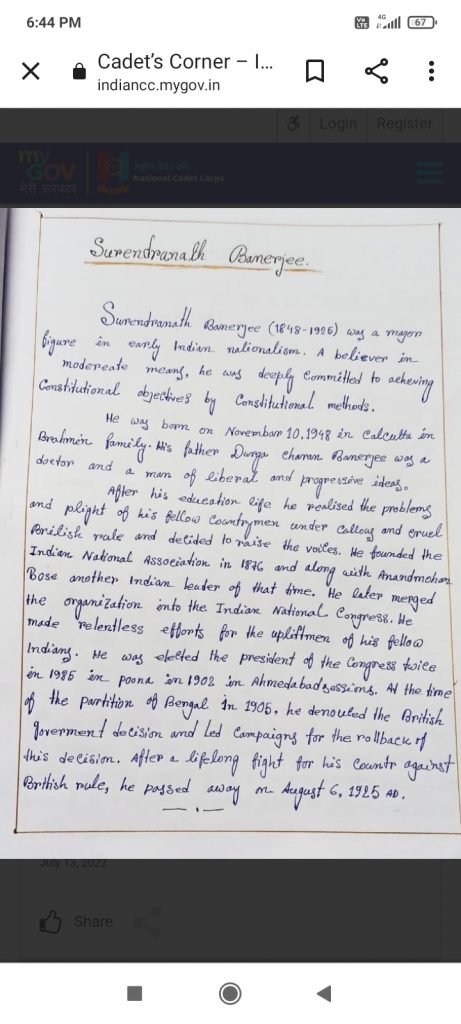 6:44 PM
Vo LTE 4G 67
Cadet's Corner – I...
indiancc.mygov.in
Login Register
my GOV
मेरी सरकार
राष्ट्रीय कैडेट कोर
National Cadet Corps
Surendranath Banerjee.
Surendranath Banerjee (1848-1926) was a major
figure in early Indian nationalism. A believer in
modereate means, he was deeply Committed to acheving
Constitutional objectives by Constitutional methods.
He was born on Novembar 10,1948 in Calcutta in
Brahmin family. His father Durga charan Banerjee was a
doctor and a man of liberal and progressive ideas.
After his education life he realised the problems
and plight of his fellow Countrymen under Callous and cruel
British rule and decided to raise the voices. He founded the
Indian National Association in 1876 and along with Anandmohan
Bose another Indian leader of that time. He later merged
the organization into the Indian National Congress. He
made relentless efforts for the upliftmen of his fellow
Indians. He was elected the president of the Congress twice
in 1985 in poona in 1902 in Ahmedabad sessions. At the time
of the partition of Bengal In 1905, he denouced the British
goverment decision and Led Campaigns for the rollback of
this decision. After a lifelong fight for his Countr against
British rule, he passed away on August 6, 1925 AD.
July 13, 2022
Share